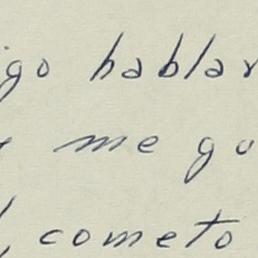 igo hablar
me gu
cometo